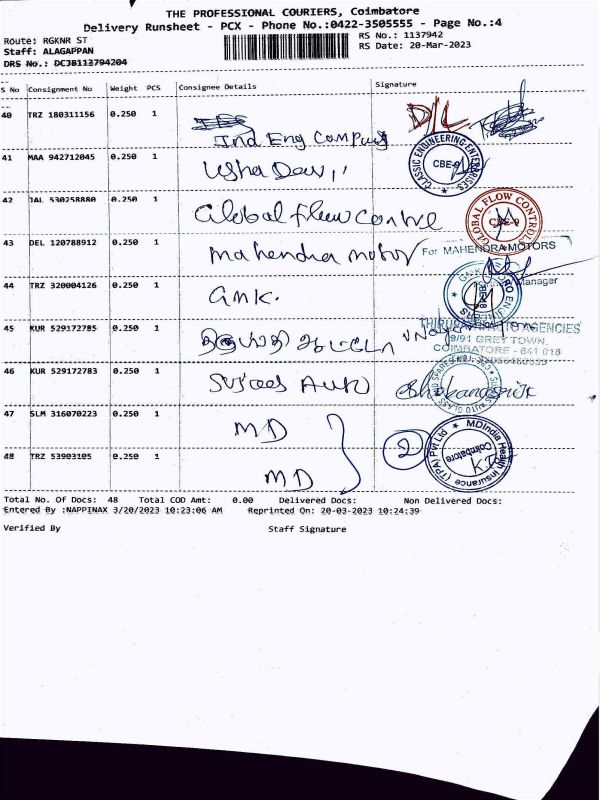 THE PROFESSIONAL COURIERS, Coimbatore
Delivery Runsheet - PCX - Phone No.:0422-3505555 - Page No.:4
Route: RGKNR ST
RS No.: 1137942
Staff: ALAGAPPAN
RS Date: 20-Mar-2023
DRS No.: DCJB113794204
S No Consignment No Weight PCS Consignee Details Signature
40 TRZ 180311156 0.250 1 Ind Eng Company D/L
41 MAA 942712045 0.250 1 Usha Devi,, CLASSIC ENGINEERING ENTERPRISES CBE-9
42 JAL 530258880 0.250 1 Global flow control GLOBAL FLOW CONTROL
43 DEL 120788912 0.250 1 mahendra motor For MAHENDRA MOTORS
Manager
44 TRZ 320004126 0.250 1 GMK.
45 KUR 529172785 0.250 1 AGENCIES
9/91 GREY TOWN,
COIMBATORE - 641 018
46 KUR 529172783 0.250 1 Auto
47 SLM 316070223 0.250 1 MD
2 MDIndia Health Insurance (TPA) Pvt Ltd Coimbatore
48 TRZ 53903105 0.250 1 MD
Total No. Of Docs: 48 Total COD Amt: 0.00 Delivered Docs: Non Delivered Docs:
Entered By :NAPPINAX 3/20/2023 10:23:06 AM Reprinted On: 20-03-2023 10:24:39
Verified By Staff Signature